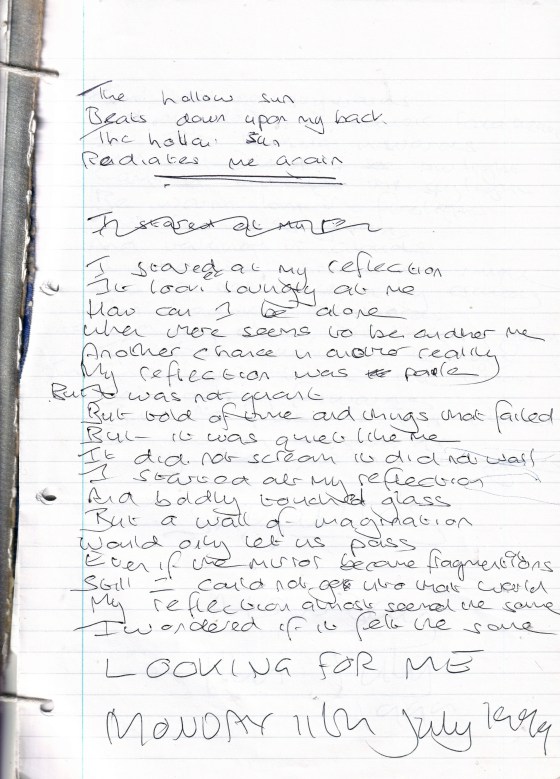 The hollow sun
Beats down upon my back.
The hollow sun
Radiates me again
I stared at my
I stared at my reflection
It look lovingly at me
How can I be alone
when there seems to be another me
Another chance in another reality
My reflection was pale
But I was not quant
But told of time and things that failed
But it was quiet like me
It did not scream it did not wail
I stared at my reflection
And boldly touched glass
But a wall of imagination
would only let us pass
Even if the mirror became fragmentions
Still I could not get into that world
My reflection almost seemed the same
I wondered if it felt the same
LOOKING FOR ME
MONDAY 11th July